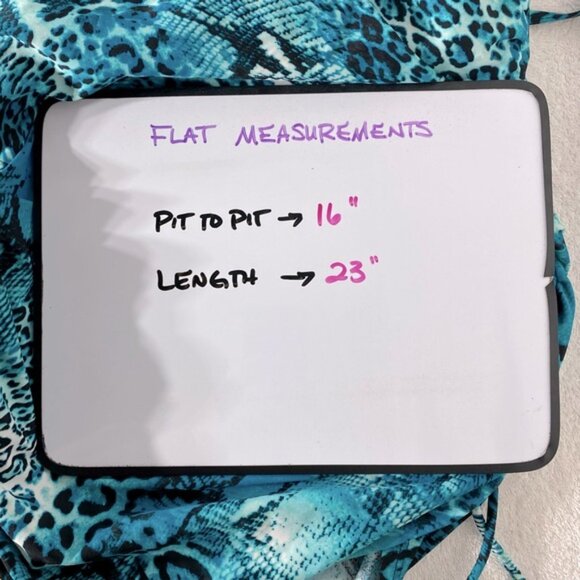 FLAT MEASUREMENTS
PIT TO PIT → 16"
LENGTH → 23"